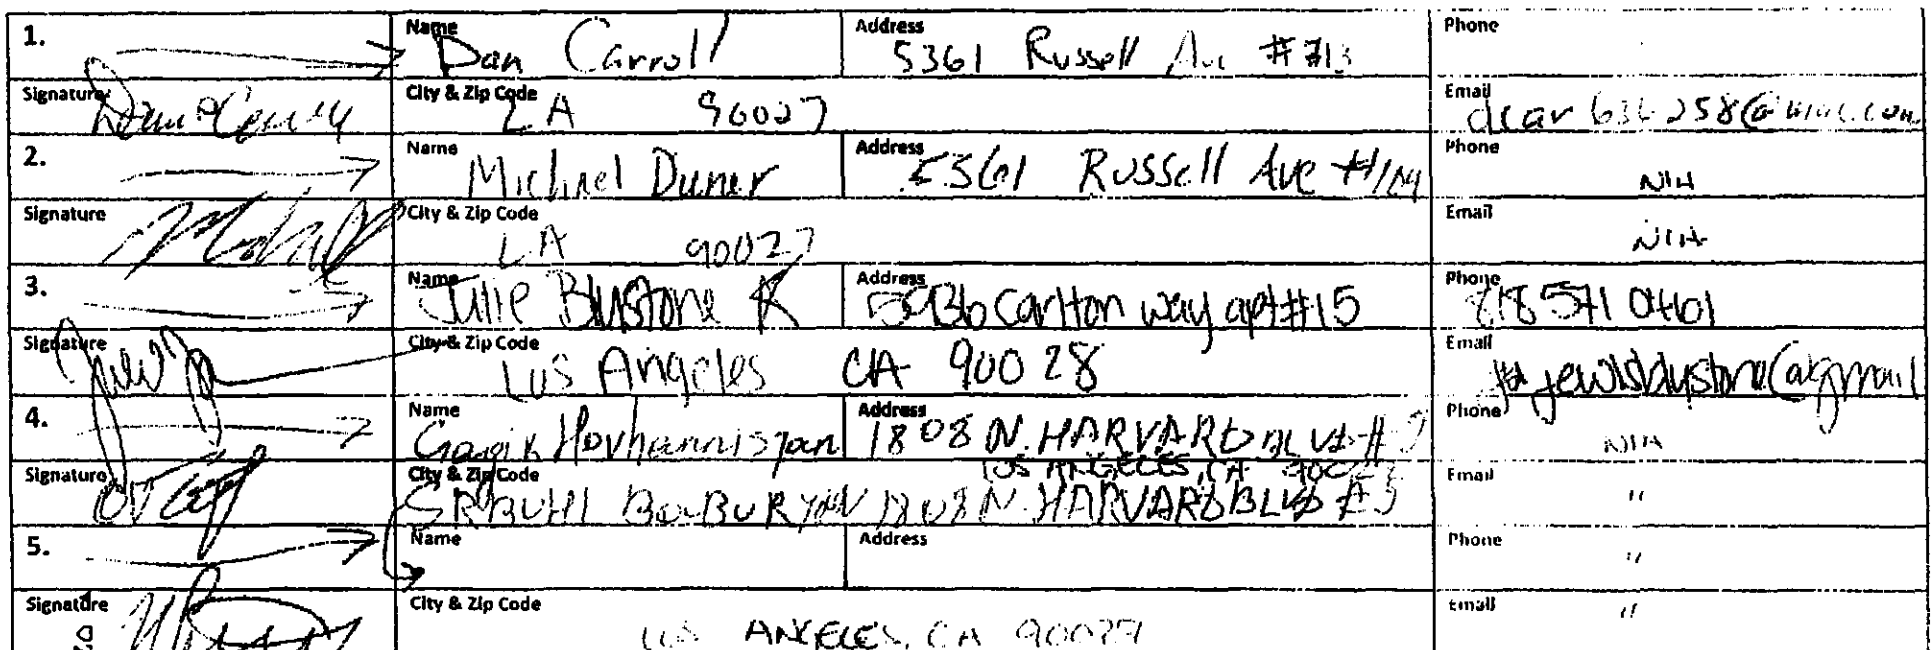 1. Name Dan Carroll Address 5361 Russell Ave Phone
Signature City & Zip Code LA 90027 Email
2. Name Michael Duner Address 5361 Russell Ave #104 Phone N/A
Signature City & Zip Code LA 90027 Email N/A
3. Name Julie Blustone K Address 5936 Carlton way apt #15 Phone 818 571 0401
Signature City & Zip Code Los Angeles CA 90028 Email
4. Name Gagik Hovhannisyan Address 1808 N. HARVARD BLVD # Phone N/A
LOS ANGELES, CA
Signature City & Zip Code SRBUHI 1808 N. HARVARD BLVD #3 Email "
5. Name Address Phone "
Signature City & Zip Code LOS ANGELES, CA 90027 Email "